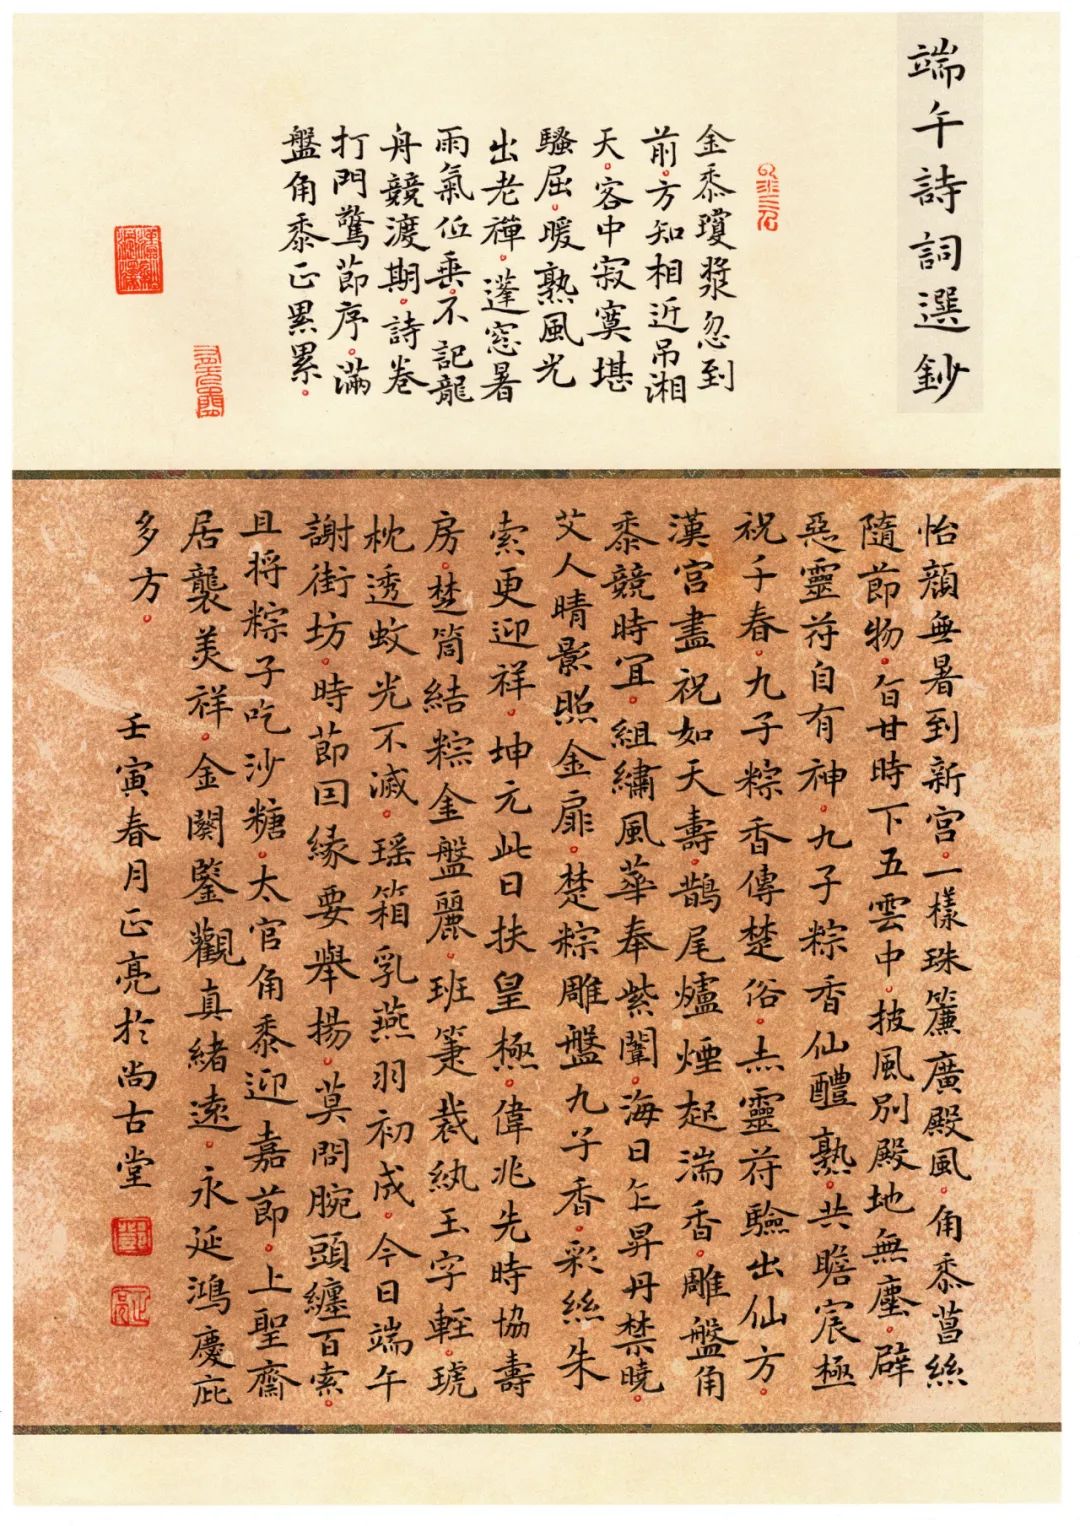 端午詩詞選鈔
金黍瓊漿忽到
前。方知相近吊湘
天。客中寂寞堪
騷屈。暖熟風光
出老禪。蓬窓暑
雨氣低垂。不記龍
舟競渡期。詩卷
打門驚節序。滿
盤角黍正累累。
怡顏無暑到新宮。一樣珠簾廣殿風。角黍菖絲
隨節物。旨甘時下五雲中。披風別殿地無塵。辟
惡靈符自有神。九子粽香仙醴熟。共瞻宸極
祝千春。九子粽香傳楚俗。赤靈符驗出仙方。
漢宮盡祝如天壽。鵲尾爐煙起湍香。雕盤角
黍競時宜。組繡風華奉紫闈。海日乍昇丹禁曉。
艾人晴影照金扉。楚粽雕盤九子香。彩絲朱
索更迎祥。坤元此日扶皇極。偉兆先時協壽
房。楚筒結粽金盤麗。班箑裁紈玉字輕。琥
枕透蚊光不滅。瑶箱乳燕羽初成。今日端午
謝街坊。時節因緣要舉揚。莫問腕頭纏百索。
且將粽子吃沙糖。太官角黍迎嘉節。上聖齋
居襲美祥。金闕鑒觀真緒遠。永延鴻慶庇
多方。
壬寅春月正亮於尚古堂